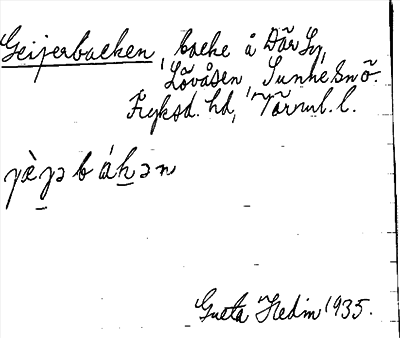 Geijerbacken, backe å
Lövåsen, Sunne sn
Fryksd. hd, Värml. l.
jæ̀jəbákən
Greta Hedin 1935.